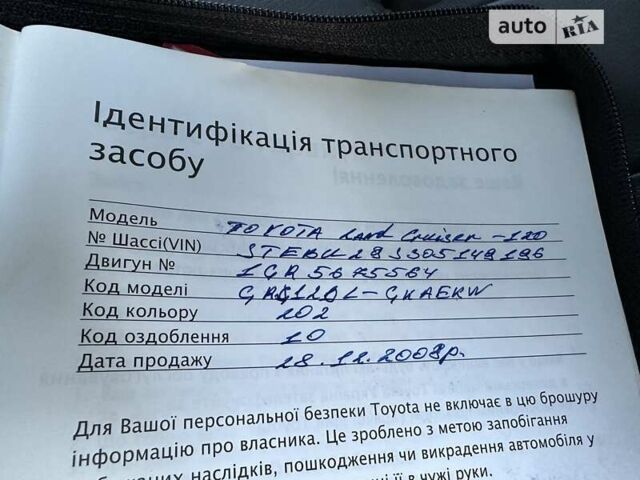 auto RIA
Ідентифікація транспортного
засобу
Модель TOYOTA Land Cruiser -120
№ Шассі(VIN) JTEBU29J305149196
Двигун № 1GR5675564
Код моделі GRJ120L-GKAEKW
Код кольору 202
Код оздоблення 10
Дата продажу 18.12.2008р.
Для Вашої персональної безпеки Toyota не включає в цю брошуру
інформацію про власника. Це зроблено з метою запобігання
наслідків, пошкодження чи викрадення автомобіля у
її в чужі руки.